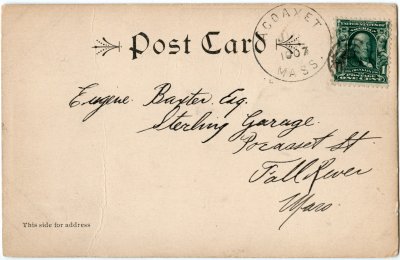 Post Card
ACOAXET
1907
MASS.
Eugene Baxter, Esq.
Sterling Garage.
Pocasset St.
Fall River
Mass.
This side for address